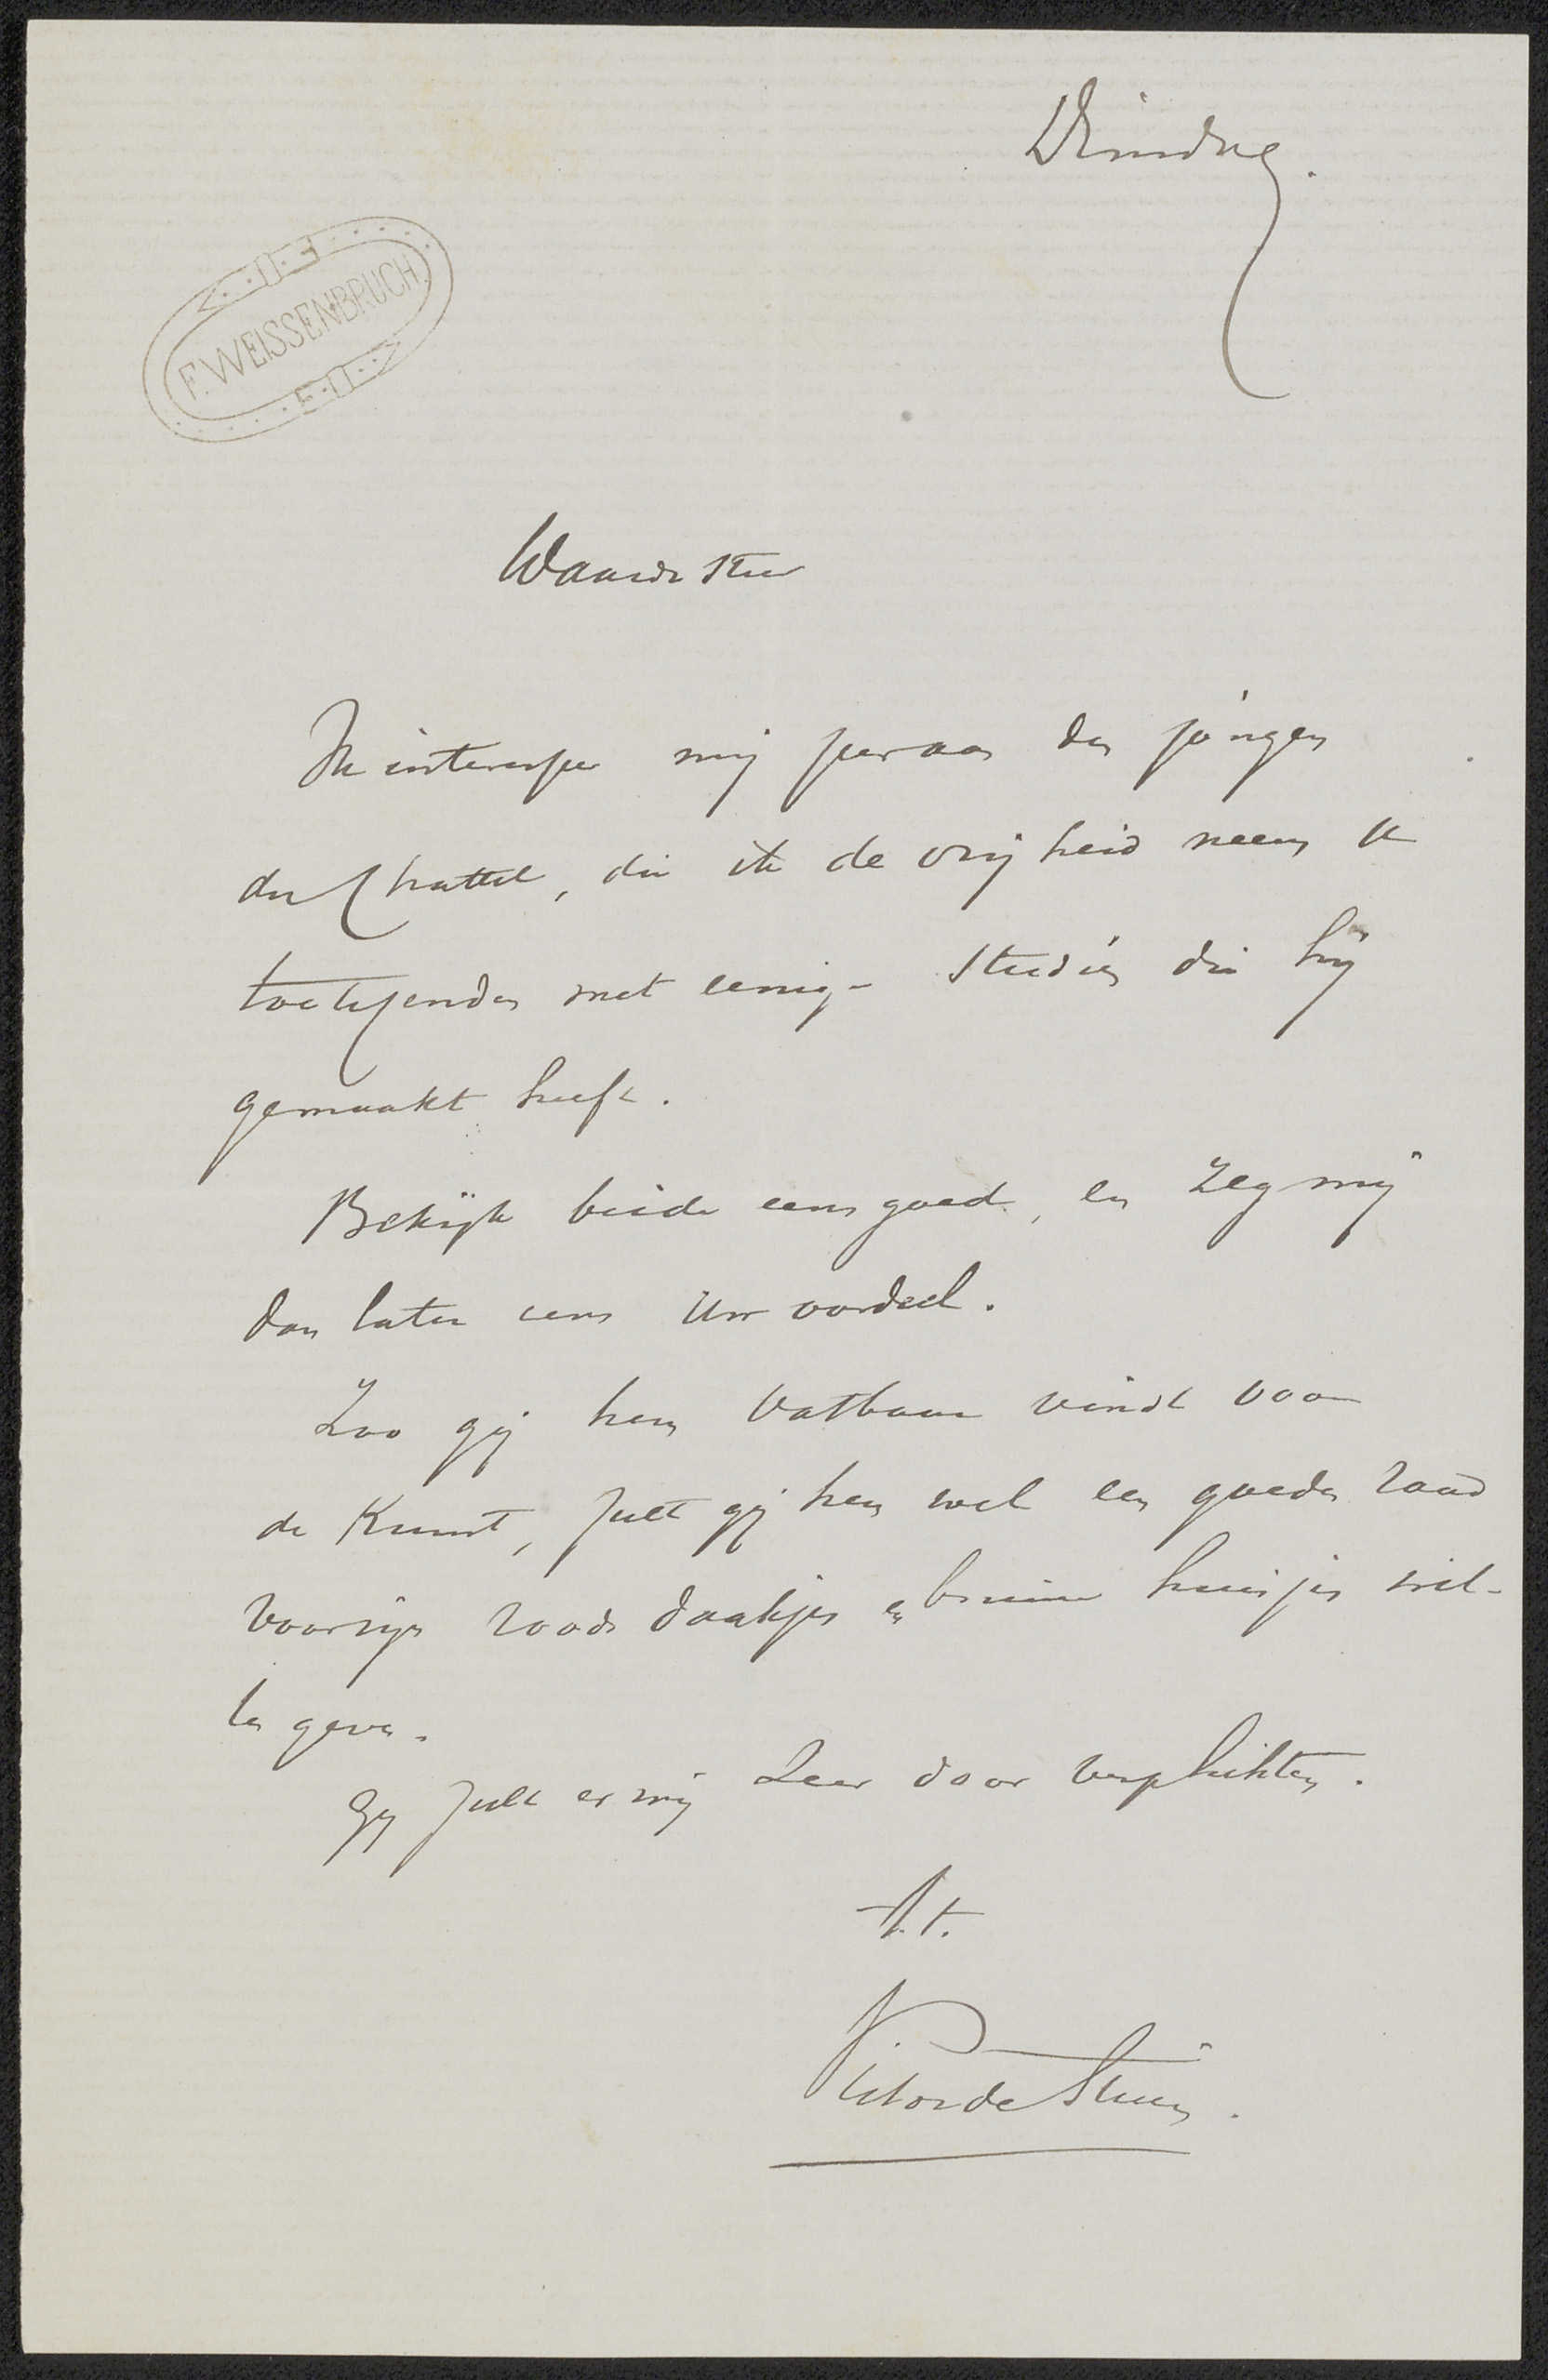 Dinsdag.
F. WEISSENBRUCH.
Waarde Heer
Ik interesseer mij voor den jongen
du Chattel, dien ik de vrijheid neem U
toetezenden met eenige studiën die hij
gemaakt heeft.
Bekijk beide eens goed, en zeg mij
dan later eens Uw oordeel.
Zoo gij hem vatbaar vindt voor
de Kunst, zult gij hem wel een goeden raad
voor zijn roode daakjes en bruine huisjes wil-
len geven.
Gij zult er mij zeer door verplichten.
t.t.
Victor de Stuers.